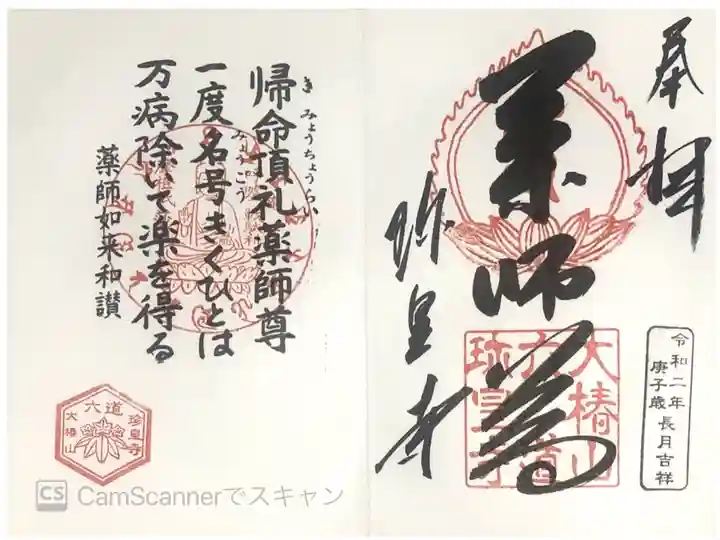 奉拝
薬師尊
珎皇寺
大椿山
六道
珎皇寺
令和二年
庚子歳長月吉祥
帰命頂礼薬師尊
き みょうちょうらい
一度名号きくひとは
みょうこう
万病除いて楽を得る
薬師如来和讃
六道
珍皇寺
大椿山
CS CamScannerでスキャン